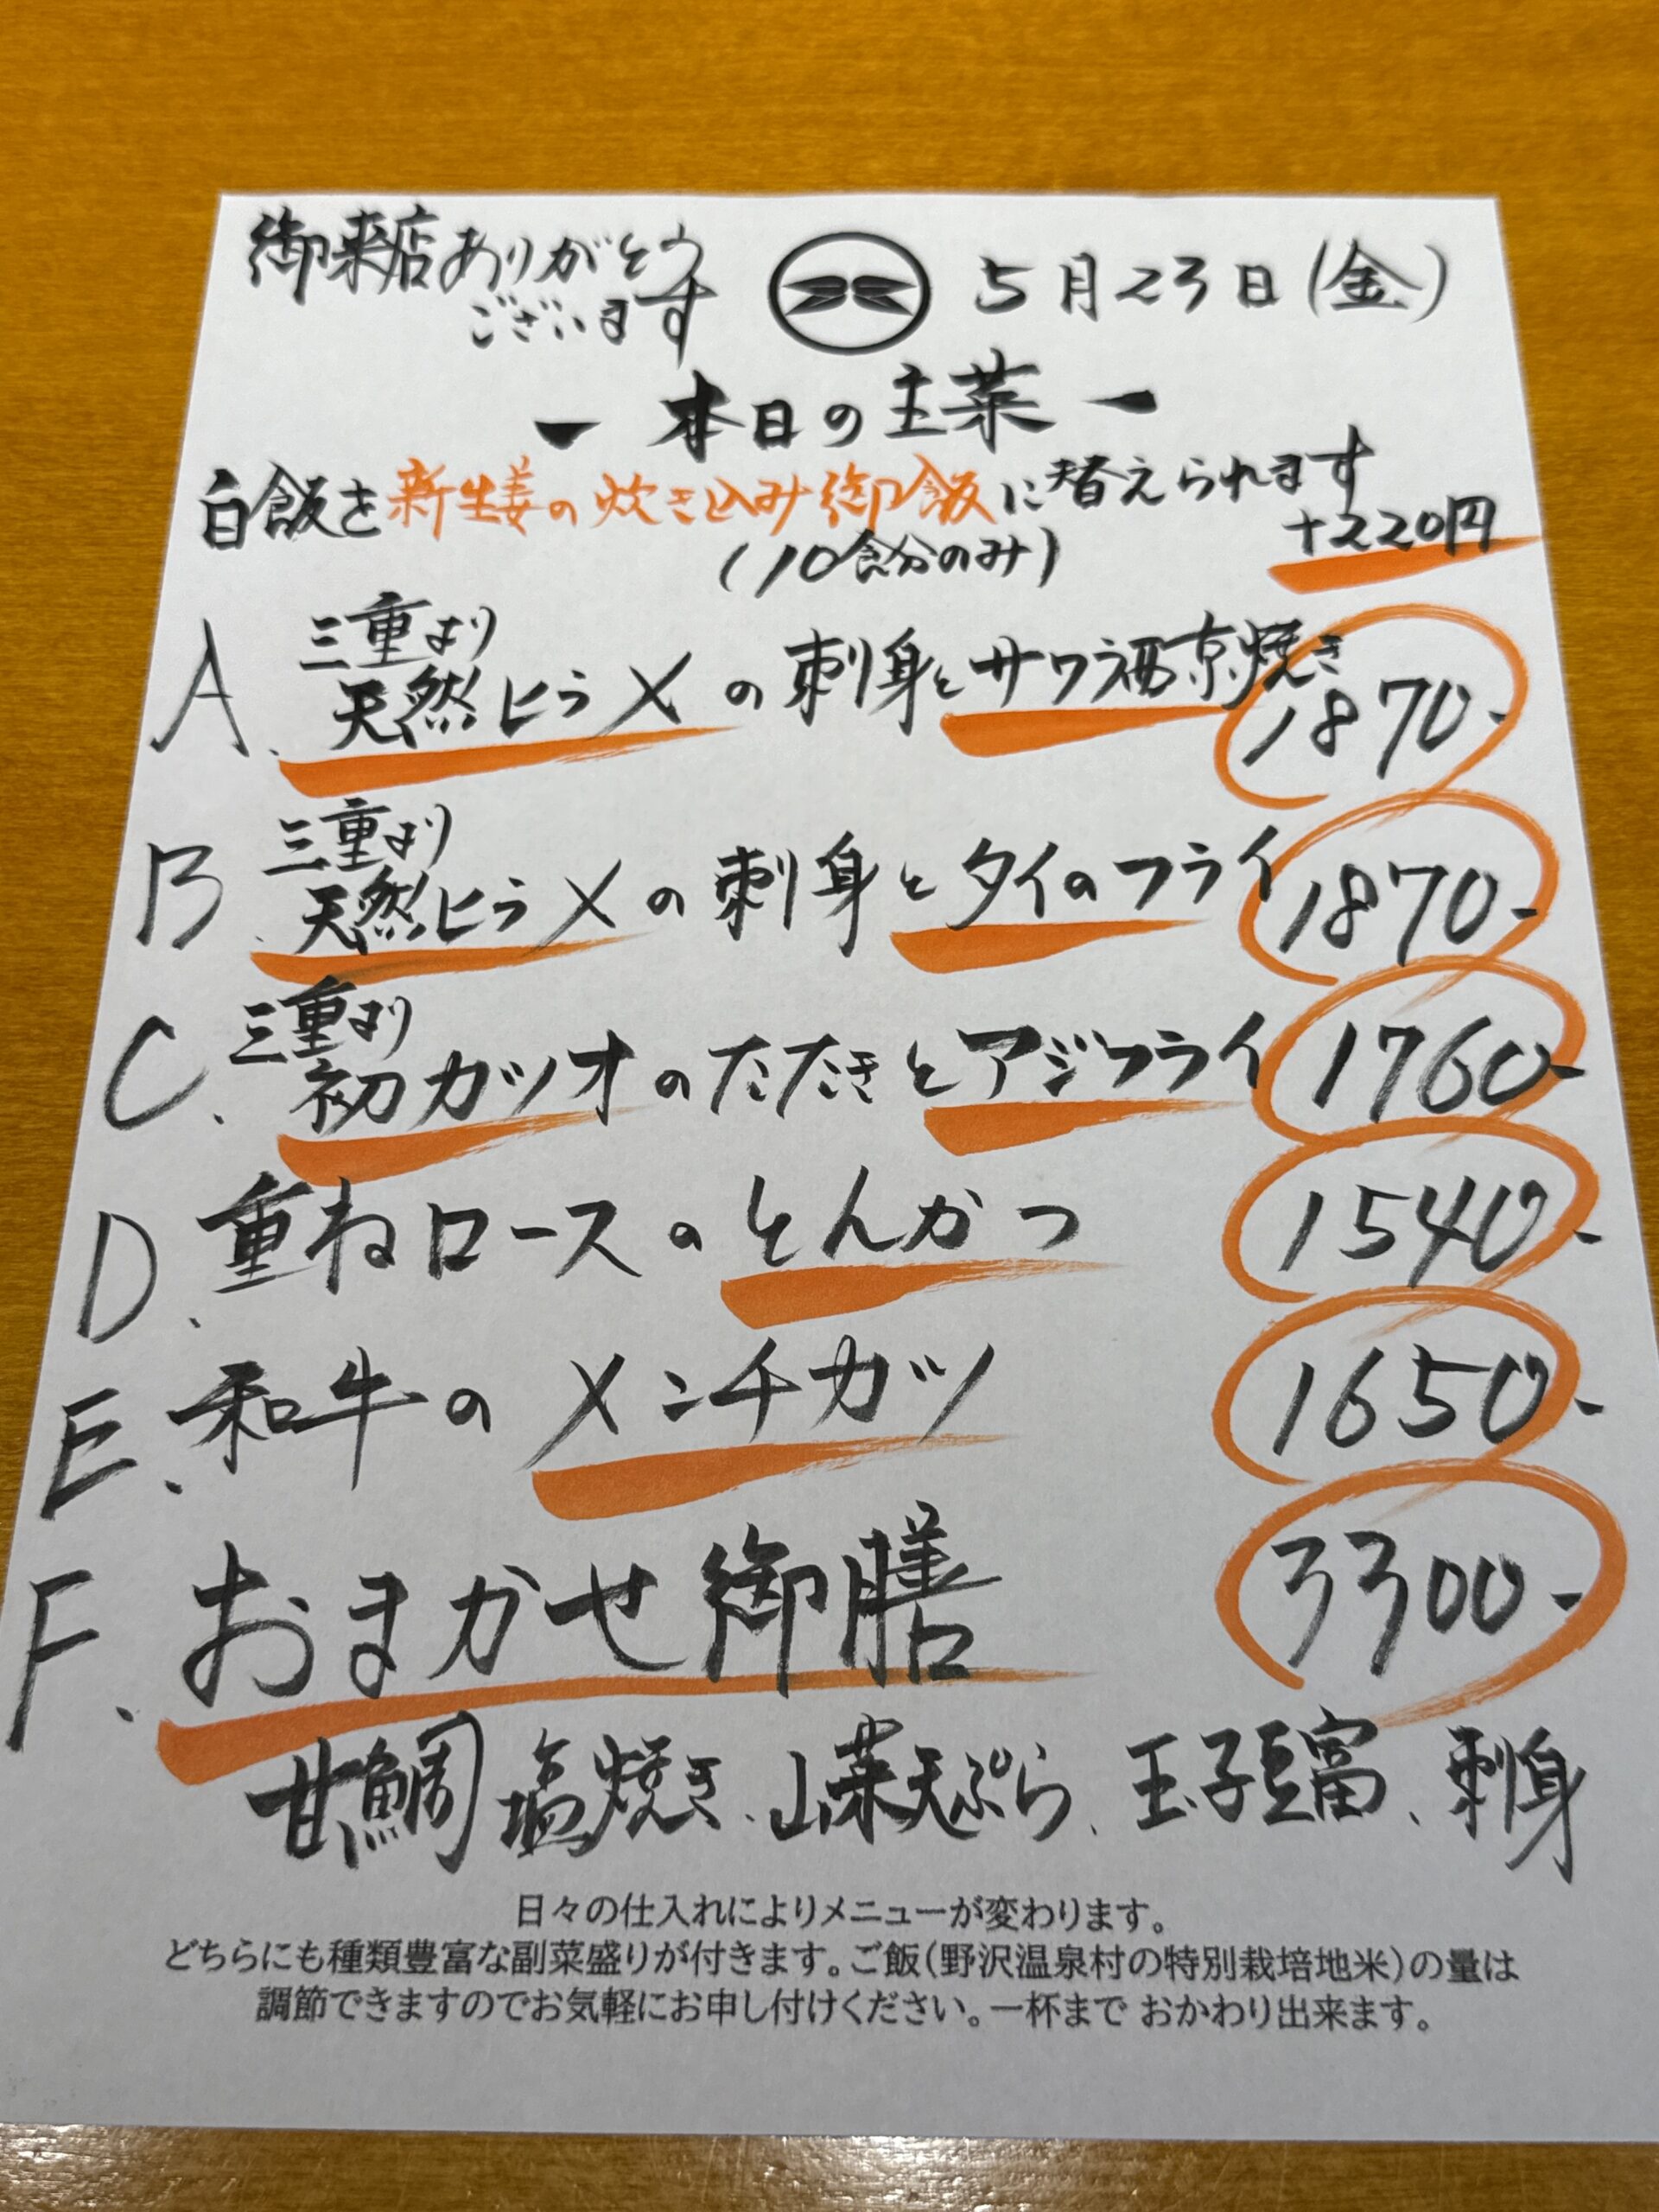 御来店ありがとう
ございます
5月23日(金)
ー 本日の主菜 ー
白飯を新生姜の炊き込み御飯に替えられます
+220円
(10食分のみ)
A. 三重より
天然ヒラメの刺身とサワラ西京焼き 1870-
B. 三重より
天然ヒラメの刺身とタイのフライ 1870-
C. 三重より
初ガツオのたたきとアジフライ 1760-
D. 重ねロースのとんかつ 1540-
E. 和牛のメンチカツ 1650-
F. おまかせ御膳 3300-
甘鯛塩焼き、山菜天ぷら、玉子豆富、刺身
日々の仕入れによりメニューが変わります。
どちらにも種類豊富な副菜盛りが付きます。ご飯(野沢温泉村の特別栽培地米)の量は
調節できますのでお気軽にお申し付けください。一杯まで おかわり出来ます。